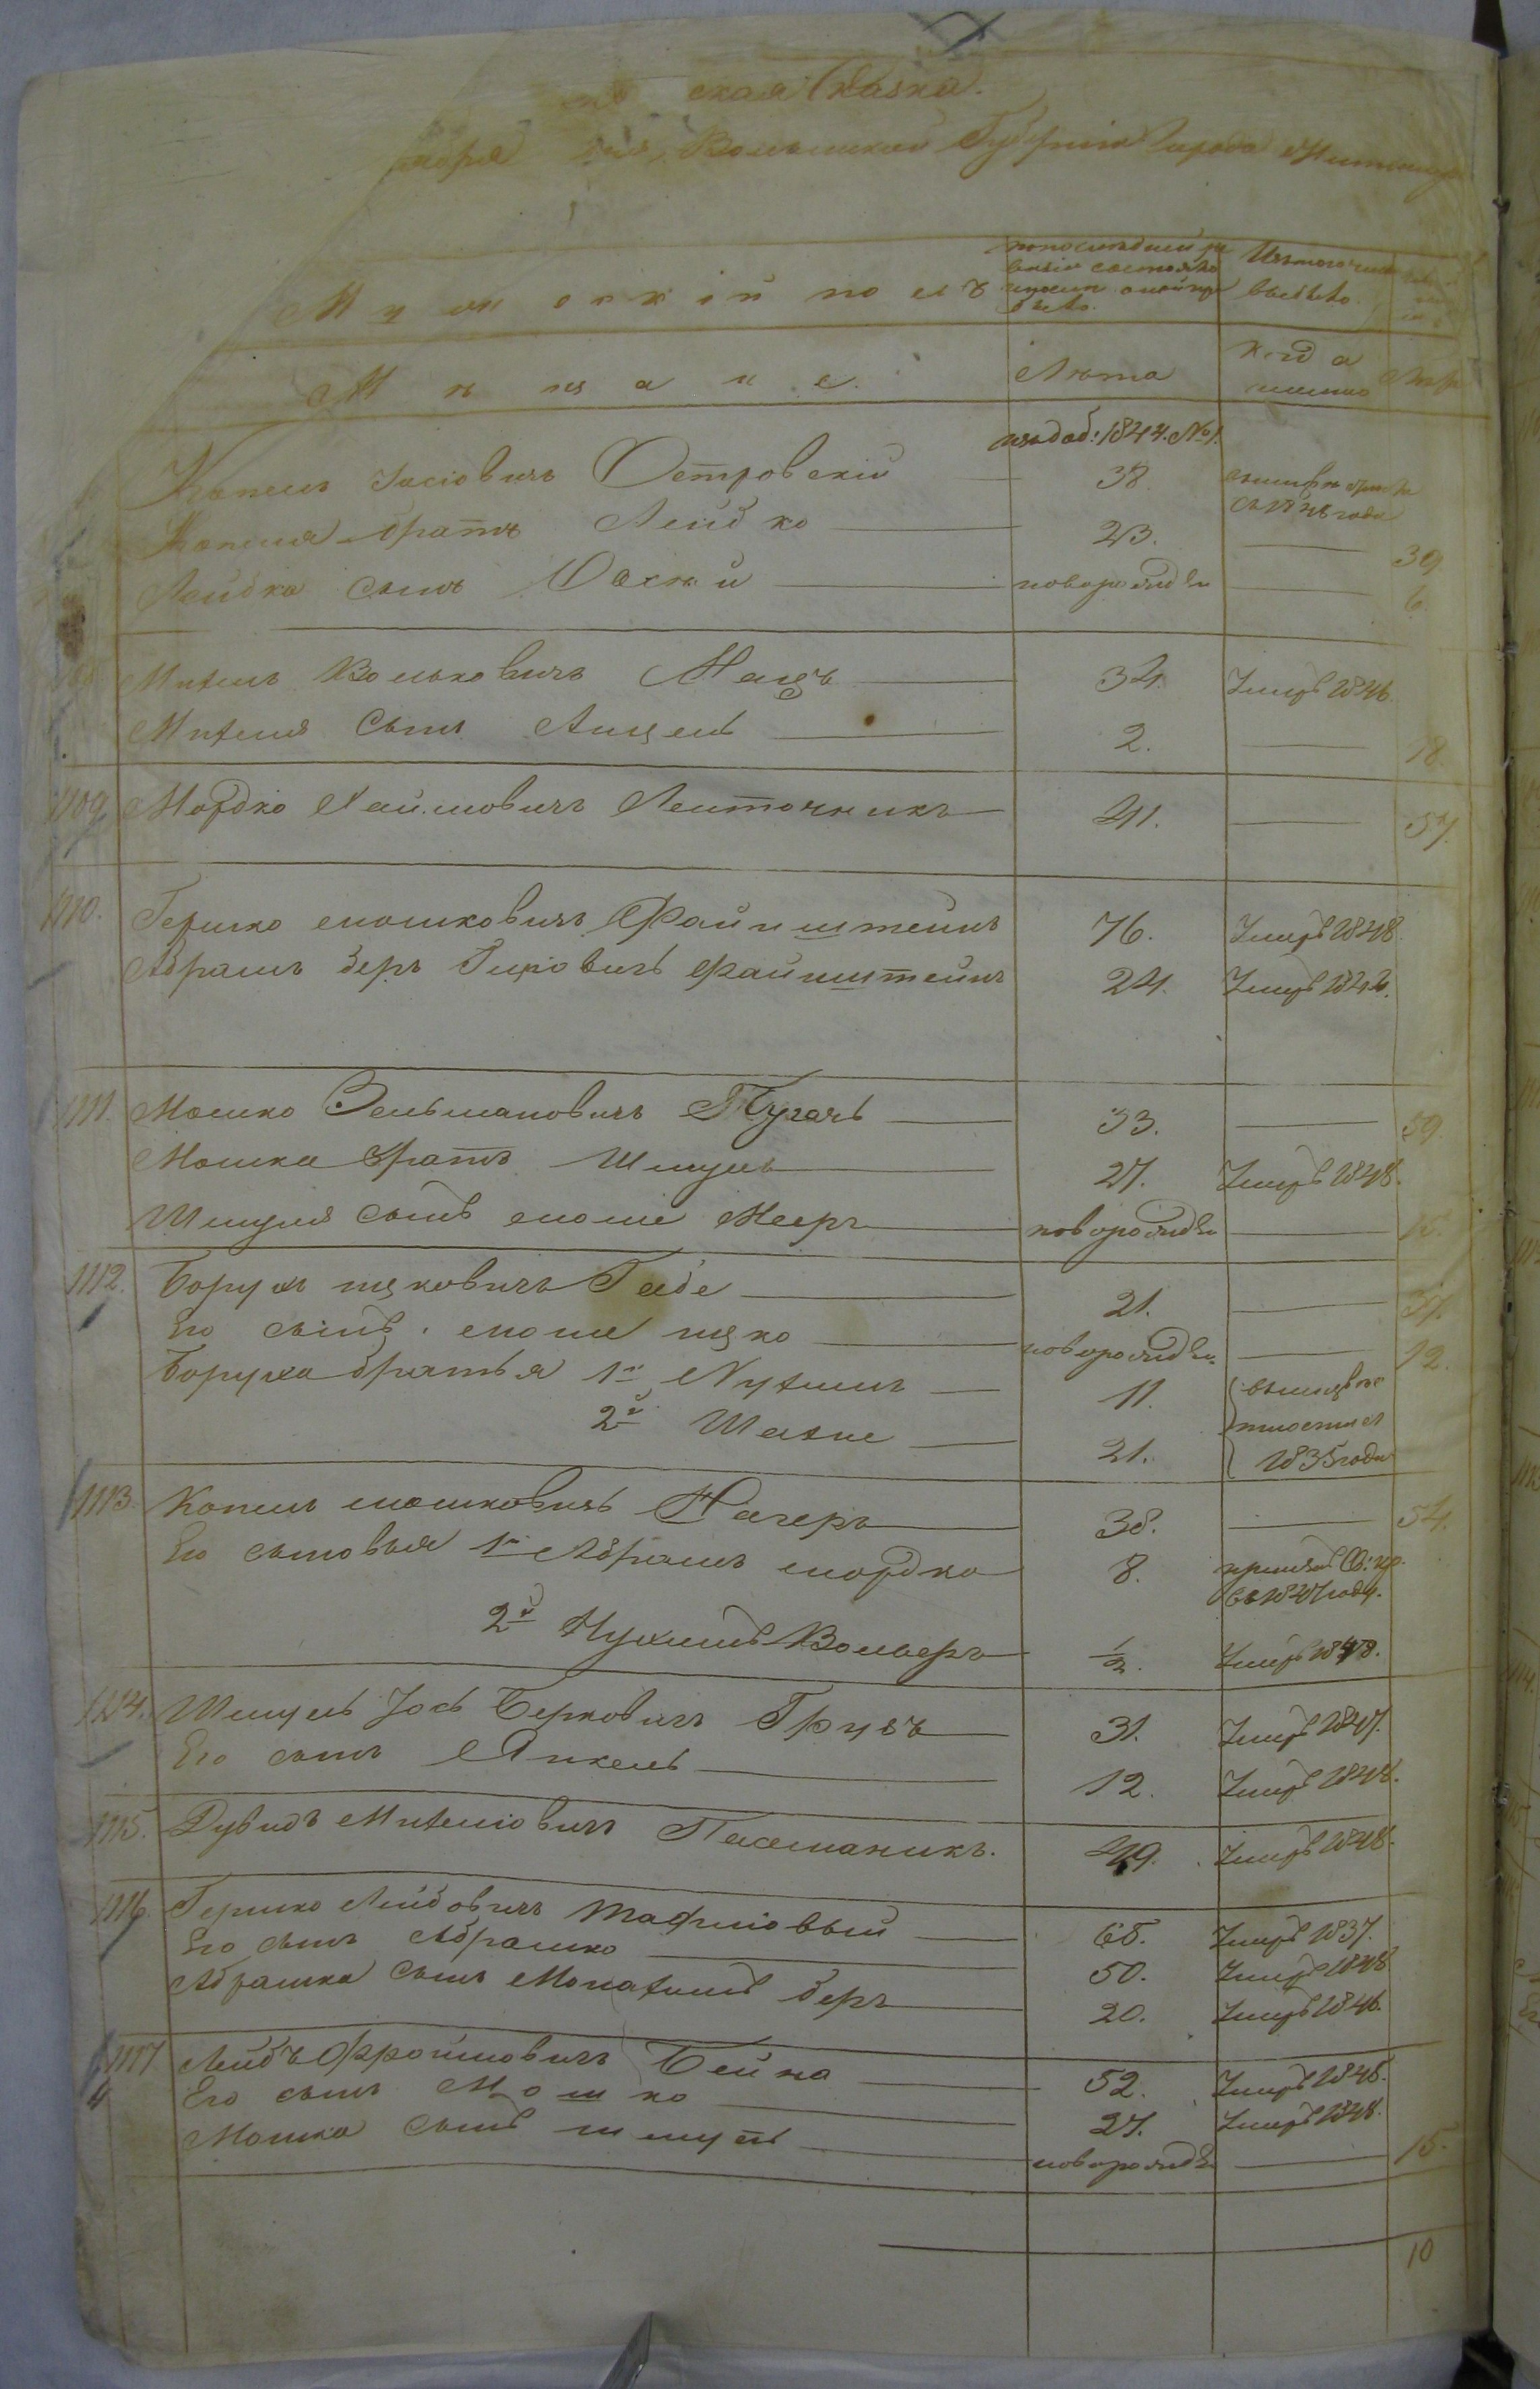 ская Сказка.
Волынской Губернии Города Житомира
Мужескій полъ
по последней ре
визіи состояло
Изъ того числа
выбыло.
Мѣщане.
Лѣта
Когда
именно
Лѣта
изъ доб: 1844. №1.
Копель Іосіовичъ Островскій 38.
48 года
Копеля братъ Лейбко 23. 39
Лейбка сынъ новорожден 6.
Михель Вольковичъ Кацъ 34. Умеръ 1846
Михеля Сынъ Анцель 2. 18.
1109 Мордко Хаимовичъ Ленточникъ 41. 57.
1110. Гершко Мошковичъ Файнштейнъ 76. Умеръ 1848
Абрамъ Беръ Файнштейнъ 24. Умеръ 1842.
1111. Мошко Зельмановичъ Пугачъ 33. 59.
Мошка братъ Шмуль 27. Умеръ 1848.
Шмуля сынъ Мееръ новорожден 15.
1112. Борухъ ицковичъ Габе 21. 37.
Его сынъ мошя ицко новорожден. 12.
Боруха братья 1й Нухимъ 11.
2й Шахне 21.
1835 года
1113. Копель мошковичъ Нагеръ 38. 54.
Его сыновья 1й Абрамъ мордко 8. принялъ Св: кр.
въ 1847 году.
2й Нухимъ Вольфъ ½. Умеръ 1848.
1114. Шмуль Іось Берковичъ Грузъ 31. Умеръ 1847.
Его сынъ Янкель 12. Умеръ 1848.
1115. Дувидъ Михеліовичъ Пасманикъ. 49. Умеръ 1848.
1116. Гершко Лейбовичъ 68. Умеръ 1837.
Его сынъ Абрашко 50. Умеръ 1848
Абрашка сынъ Монахимъ беръ 20. Умеръ 1846.
1117. Лейбъ Фроимовичъ Бейка 52. Умеръ 1848.
Его сынъ Мошко 27. Умеръ 1848.
Мошка сынъ шмуль новорожден 15.
10